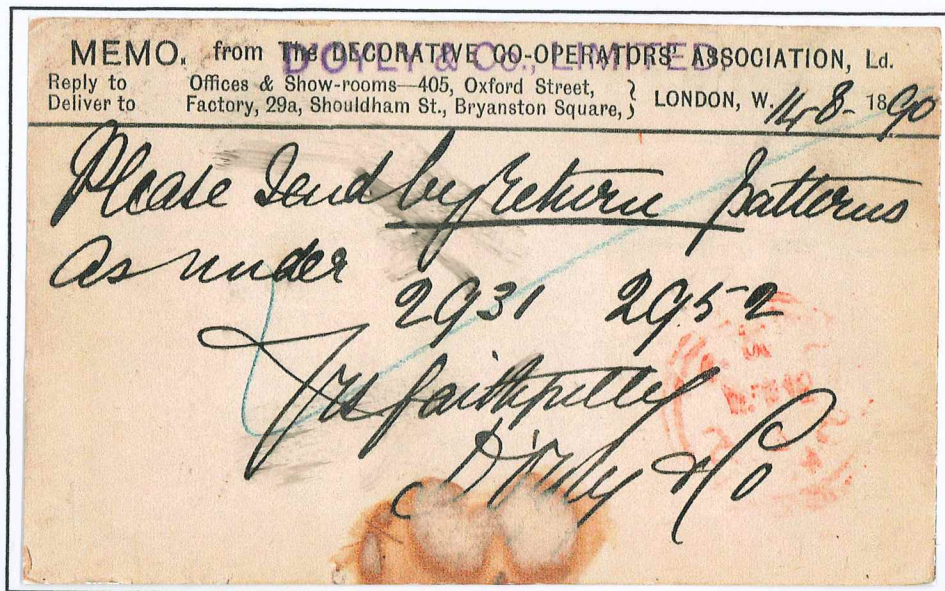 MEMO. from The DECORATIVE CO-OPERATORS' ASSOCIATION, Ld.
D'OYLY & Co., LIMITED.
Reply to Offices & Show-rooms—405, Oxford Street,
Deliver to Factory, 29a, Shouldham St., Bryanston Square, } LONDON, W. 14-8-1890
Please Send by return patterns
as under
2931 2952
Yrs faithfully
D'Oyly & Co